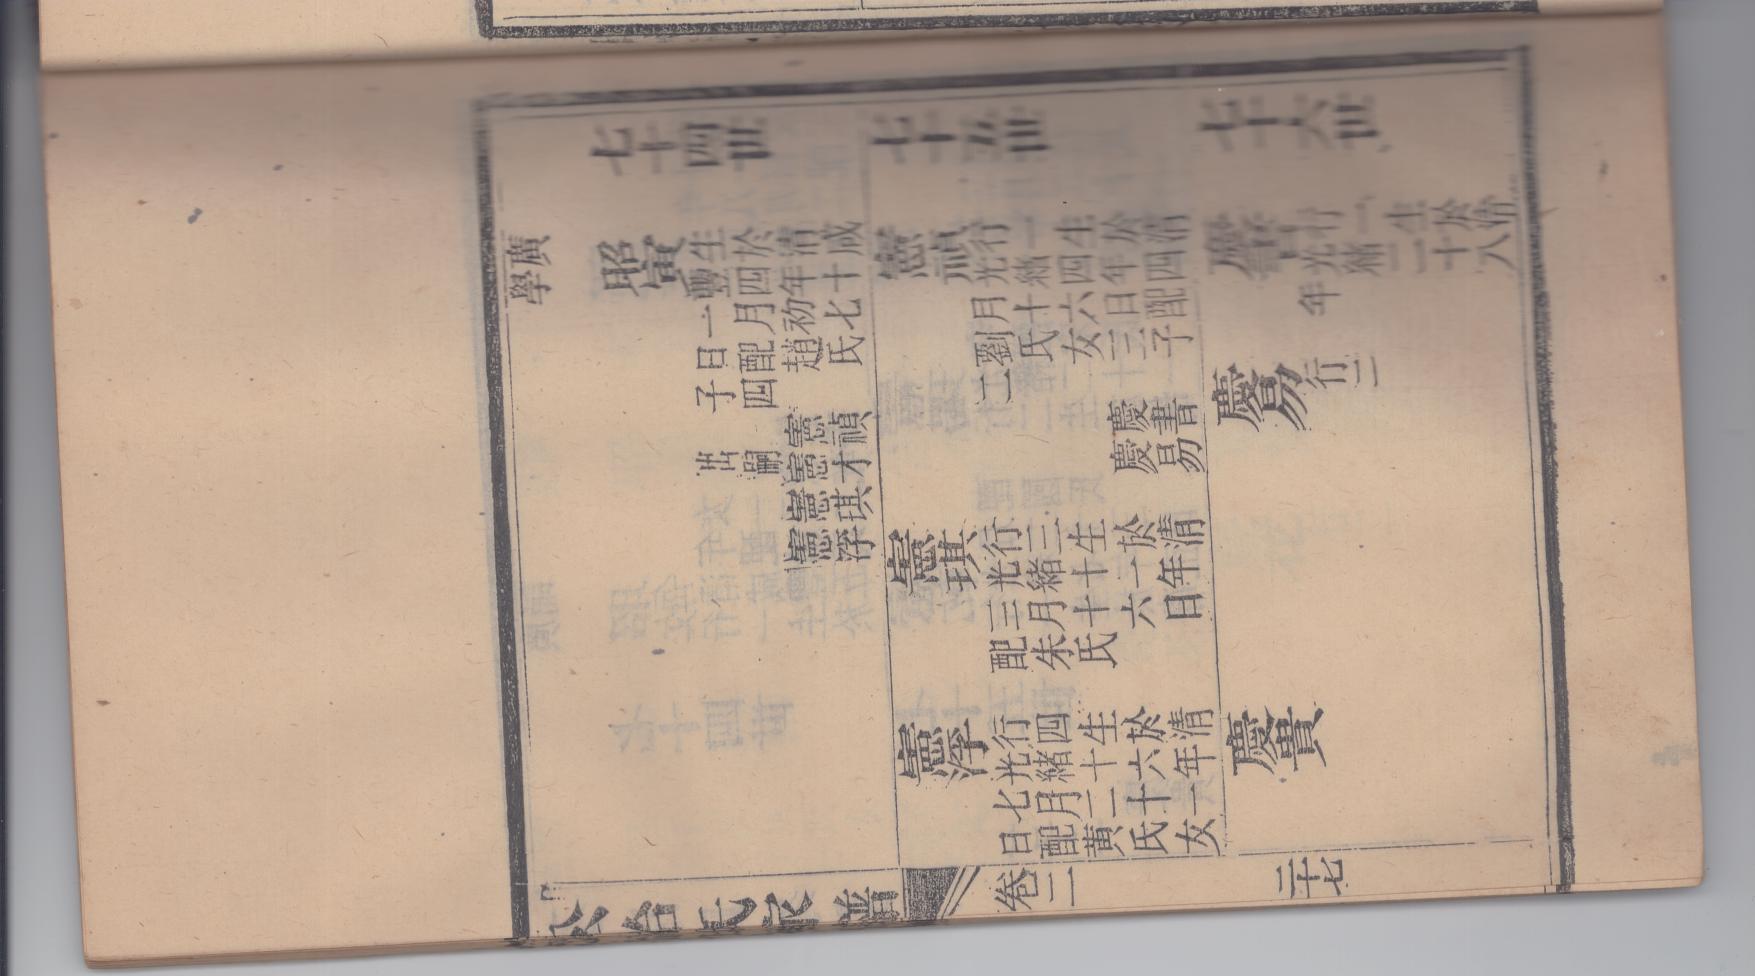 七十四世
七十五世
七十六世
廣學
照寅
生於清咸
豐四年十
一月初七
日配趙氏
子四
憲禎
出嗣憲才
憲琪
憲浮
憲禎
行一生於清
光緒四年四
月十六日配
劉氏女三子
二
慶書
慶易
慶書
行一生於清
光緒二十八
年
慶易
行二
憲琪
行三生於清
光緒十一年
三月十六日
配朱氏
憲浮
行四生於清
光緒十六年
七月二十一
日配黃氏女
慶貴
公冶氏家譜
卷二
二十七